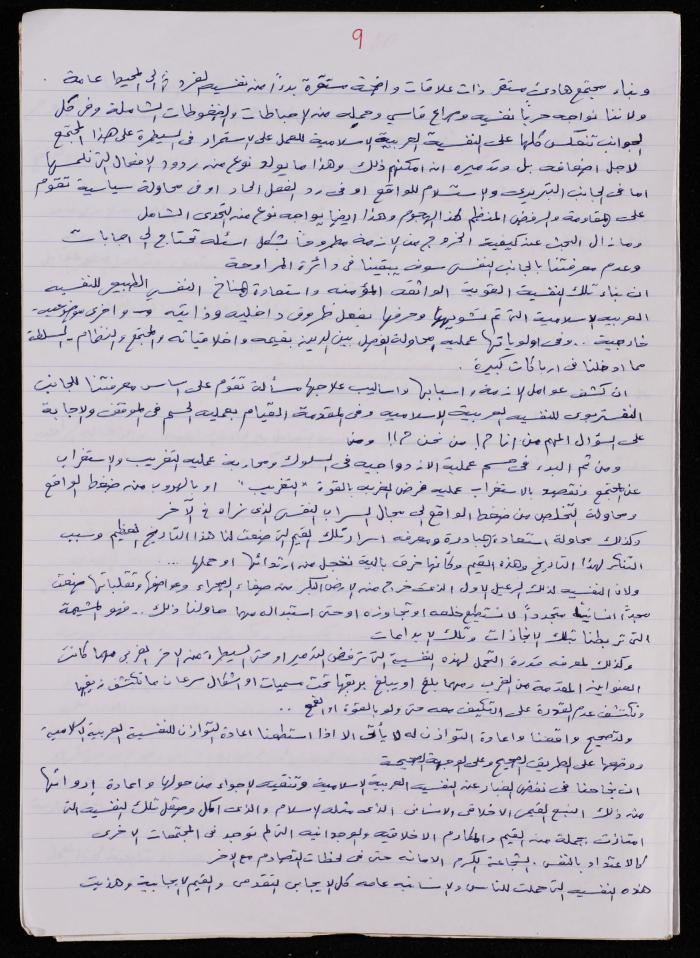 9
وبناء مجتمع هادئ مستقر ذات علاقات واضحة مستقرة بدءاً من نفسية الفرد ثم الى المحيط عامة .
ولاننا نواجه حرباً نفسيه وصراع قاسي وجمله من الاحباطات والضغوطات الشاملة وفي كل
الجوانب تنعكس كلها على النفسية العربية الاسلامية للعمل على الاستمرار في السيطرة على هذا المجتمع
لاجل اضعافه بل وتدميره ان امكنهم ذلك وهذا ما يولد نوع من ردود الافعال التي نلمسها
اما في الجانب التبريري والاستسلام للواقع او في رد الفعل الحاد او في محاولة سياسية تقوم
على المقاومة والرفض المنظم لهذا الهجوم وهذا ايضا يواجه نوع من التحدي الشامل
وما زال البحث عن كيفية الخروج من الازمة مطروحاً بشكل اسئله تحتاج الى اجابات
وعدم معرفتنا بالجانب النفسي سوف يبقينا في دائرة المراوحة
ان بناء تلك النفسية القوية الواثقه المؤمنه واستعادة المناخ النفسي الطبيعي للنفسيه
العربيه الاسلامية التي تم تشويهها وحرفها بفعل ظروف داخليه وذاتيه واخرى موضوعيه
خارجية .. وفي اولوياتها عملية محاولة الفصل بين الدين بقيمه واخلاقياته والمجتمع والنظام السلطة
مما ادخلنا في ارباكات كبيرة .
ان كشف عوامل الازمه واسبابها واساليب علاجها مسألة تقوم على اساس معرفتنا للجانب
النفسي للنفسيه العربيه الاسلاميه وفي المقدمة القيام بعملية الحسم في الموقف والاجابة
على السؤال المهم من انا ؟! من نحن ؟!! ومن
ومن ثم البدء في حسم عملية الازدواجيه في السلوك ومحاربة عمليه التغريب والاستغراب
عن المجتمع ونقصد بالاستغراب عمليه فرض الغربه بالقوة "التغريب" او بالهروب من ضغط الواقع
ومحاولة التخلص من ضغط الواقع الى مجال السراب النفسي الذي نراه في الآخر
وكذلك محاولة استعادة المبادرة ومعرفه اسرار تلك القيم التي صنعت لنا هذا التاريخ العظيم وسبب
التنكر لهذا التاريخ وهذه القيم وكأنها خرق بالية نخجل من ارتدائها او حملها ...
ولان النفسيه لذلك الرعيل الاول الذي خرج من الارض البكر من صفاء الصحراء وعواصفها وتقلباتها صنعت
مجداً انسانياً متجدداً لا نستطيع خلعه او تجاوزه او حتى استبداله مهما حاولنا ذلك .. فهو المشيمة
التي تربطنا بتلك الانجازات وتلك الابداعات
وكذلك لمعرفه قدرة التحمل لهذه النفسية التي ترفض التدمير او حتى السيطرة من الاخر الغربي مهما كانت
العناوين المقدمة من الغرب ومهما بلغ او يبلغ بريقها تحت مسميات او اشكال سرعان ما تكتشف زيفها
وتكتشف عدم القدرة على التكيف معه حتى ولو بالقوة او القمع ..
ولتصحيح واقعنا واعادة التوازن له لا يأتي الا اذا استطعنا اعادة التوازن للنفسية العربية الاسلامية
ووضعها على الطريق الصحيح وعلى الوجهة الصحيحة
ان نجاحنا في نفض الغبار عن النفسيه العربية الاسلامية وتنقيه الاجواء من حولها واعادة إروائها
من ذلك النبع القيمي الاخلاقي الانساني الذي مثله الاسلام والذي اكمل وصقل تلك النفسيه التي
امتازت بجملة من القيم والمكارم الاخلاقيه والوجدانيه التي لم توجد في المجتمعات الاخرى
كالاعتداد بالنفس . الشجاعة الكرم الامانه حتى في لحظات التصادم مع الاخر
هذه النفسيه التي حملت للناس والانسانيه عامه كل الايجابي التقدمي والقيم الايجابية وهذبت